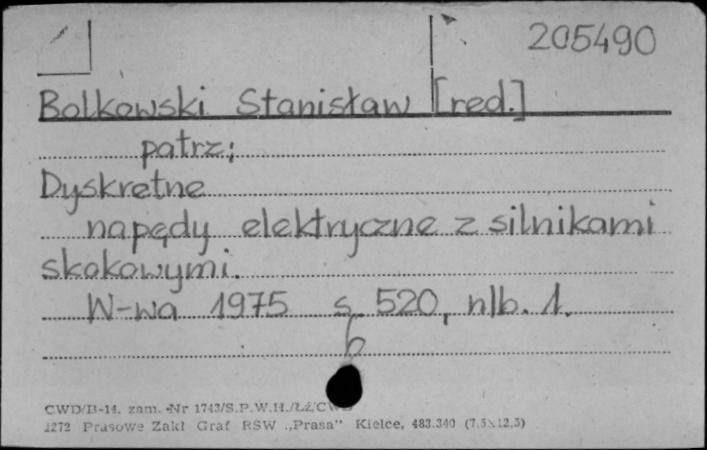 205490
Bolkowski Stanisław [red.]
patrz;
Dyskretne
napędy elektryczne z silnikami
skokowymi.
W-wa 1975 s. 520, nlb. 1.
CWD/B-14. zam. Nr 1743/S.P.W.H./Łź/CWD
1272 Prasowe Zakł Graf RSW „Prasa” Kielce, 483.340 (7,5x12,5)